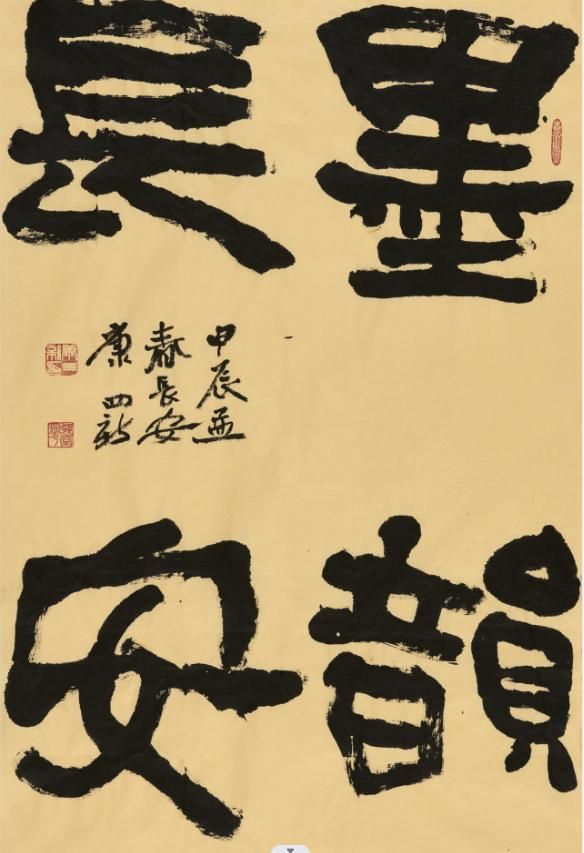 墨韻
長安
甲辰孟
春長安
康四